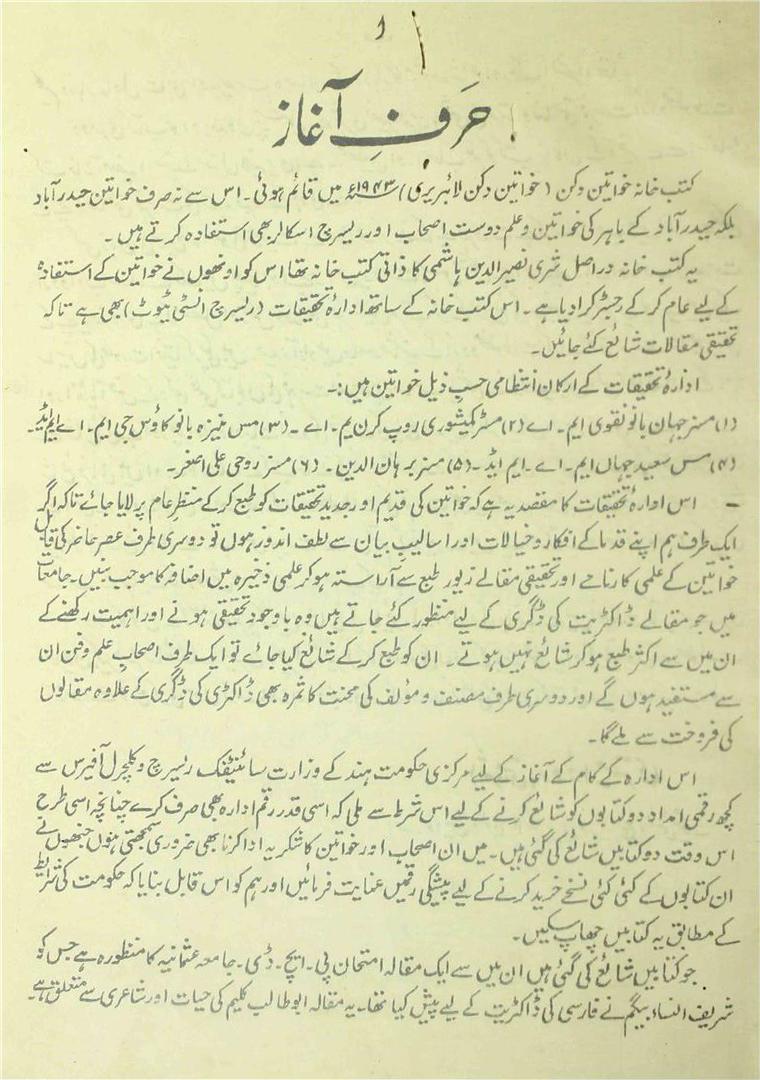 1
حرفِ آغاز
کتب خانہ خواتین دکن (خواتین دکن لائبریری) ۱۹۴۳ء میں قائم ہوئی۔ اس سے نہ صرف خواتین حیدرآباد
بلکہ حیدرآباد کے باہر کی خواتین و علم دوست اصحاب اور ریسرچ اسکالر بھی استفادہ کرتے ہیں۔
یہ کتب خانہ دراصل شری نصیر الدین ہاشمی کا ذاتی کتب خانہ تھا اس کو اونھوں نے خواتین کے استفادہ
کے لیے عام کر کے رجسٹر کرا دیا ہے۔ اس کتب خانہ کے ساتھ ادارۂ تحقیقات (ریسرچ انسٹی ٹیوٹ) بھی ہے تاکہ
تحقیقی مقالات شائع کئے جائیں۔
ادارۂ تحقیقات کے ارکان انتظامی حسب ذیل خواتین ہیں:۔
(۱) مسز جہاں بانو نقوی ایم۔ اے (۲) مسٹر کمیشوری روپ کرن یم۔ اے ۔ (۳) مس منیزہ بانو کاؤس جی ایم۔ اے ایم ایڈ۔
(۴) مس سعید جہاں ایم۔ اے۔ ایم ایڈ۔ (۵) مسز برہان الدین۔ (۶) مسز روحی علی اصغر۔
۔ اس ادارۂ تحقیقات کا مقصد یہ ہے کہ خواتین کی قدیم اور جدید تحقیقات کو طبع کر کے منظر عام پر لایا جائے تاکہ اگر
ایک طرف ہم اپنے قدما کے افکار و خیالات اور اسالیب بیان سے لطف اندوز ہوں تو دوسری طرف عصر حاضر کی قابل
خواتین کے علمی کارنامے اور تحقیقی مقالے زیور طبع سے آراستہ ہو کر علمی ذخیرہ میں اضافہ کا موجب بنیں۔ جامعات
میں جو مقالے ڈاکٹریٹ کی ڈگری کے لیے منظور کئے جاتے ہیں وہ باوجود تحقیقی ہونے اور اہمیت رکھنے کے
ان میں سے اکثر طبع ہو کر شائع نہیں ہوتے۔ ان کو طبع کر کے شائع کیا جائے تو ایک طرف اصحاب علم و فن ان
سے مستفید ہوں گے اور دوسری طرف مصنف و مؤلف کی محنت کا ثمرہ بھی ڈاکٹری کی ڈگری کے علاوہ مقالوں
کی فروخت سے ملے گا۔
اس ادارہ کے کام کے آغاز کے لیے مرکزی حکومت ہند کے وزارت سائنٹفک ریسرچ و کلچرل آفیرس سے
کچھ رقمی امداد دو کتابوں کو شائع کرنے کے لیے اس شرط سے ملی کہ اسی قدر رقم ادارہ بھی صرف کرے چنانچہ اسی طرح
اس وقت دو کتابیں شائع کی گئی ہیں۔ میں ان اصحاب اور خواتین کا شکریہ ادا کرنا بھی ضروری سمجھتی ہوں جنھوں نے
ان کتابوں کے کئی کئی نسخے خرید کرنے کے لیے پیشگی رقمیں عنایت فرمائیں اور ہم کو اس قابل بنایا کہ حکومت کی شرائط
کے مطابق یہ کتابیں چھاپ سکیں۔
جو کتابیں شائع کی گئی ہیں ان میں سے ایک مقالہ امتحان پی۔ ایچ۔ ڈی۔ جامعہ عثمانیہ کا منظورہ ہے جس کو
شریف النساء بیگم نے فارسی کی ڈاکٹریٹ کے لیے پیش کیا تھا۔ یہ مقالہ ابوطالب کلیم کی حیات اور شاعری سے متعلق ہے۔